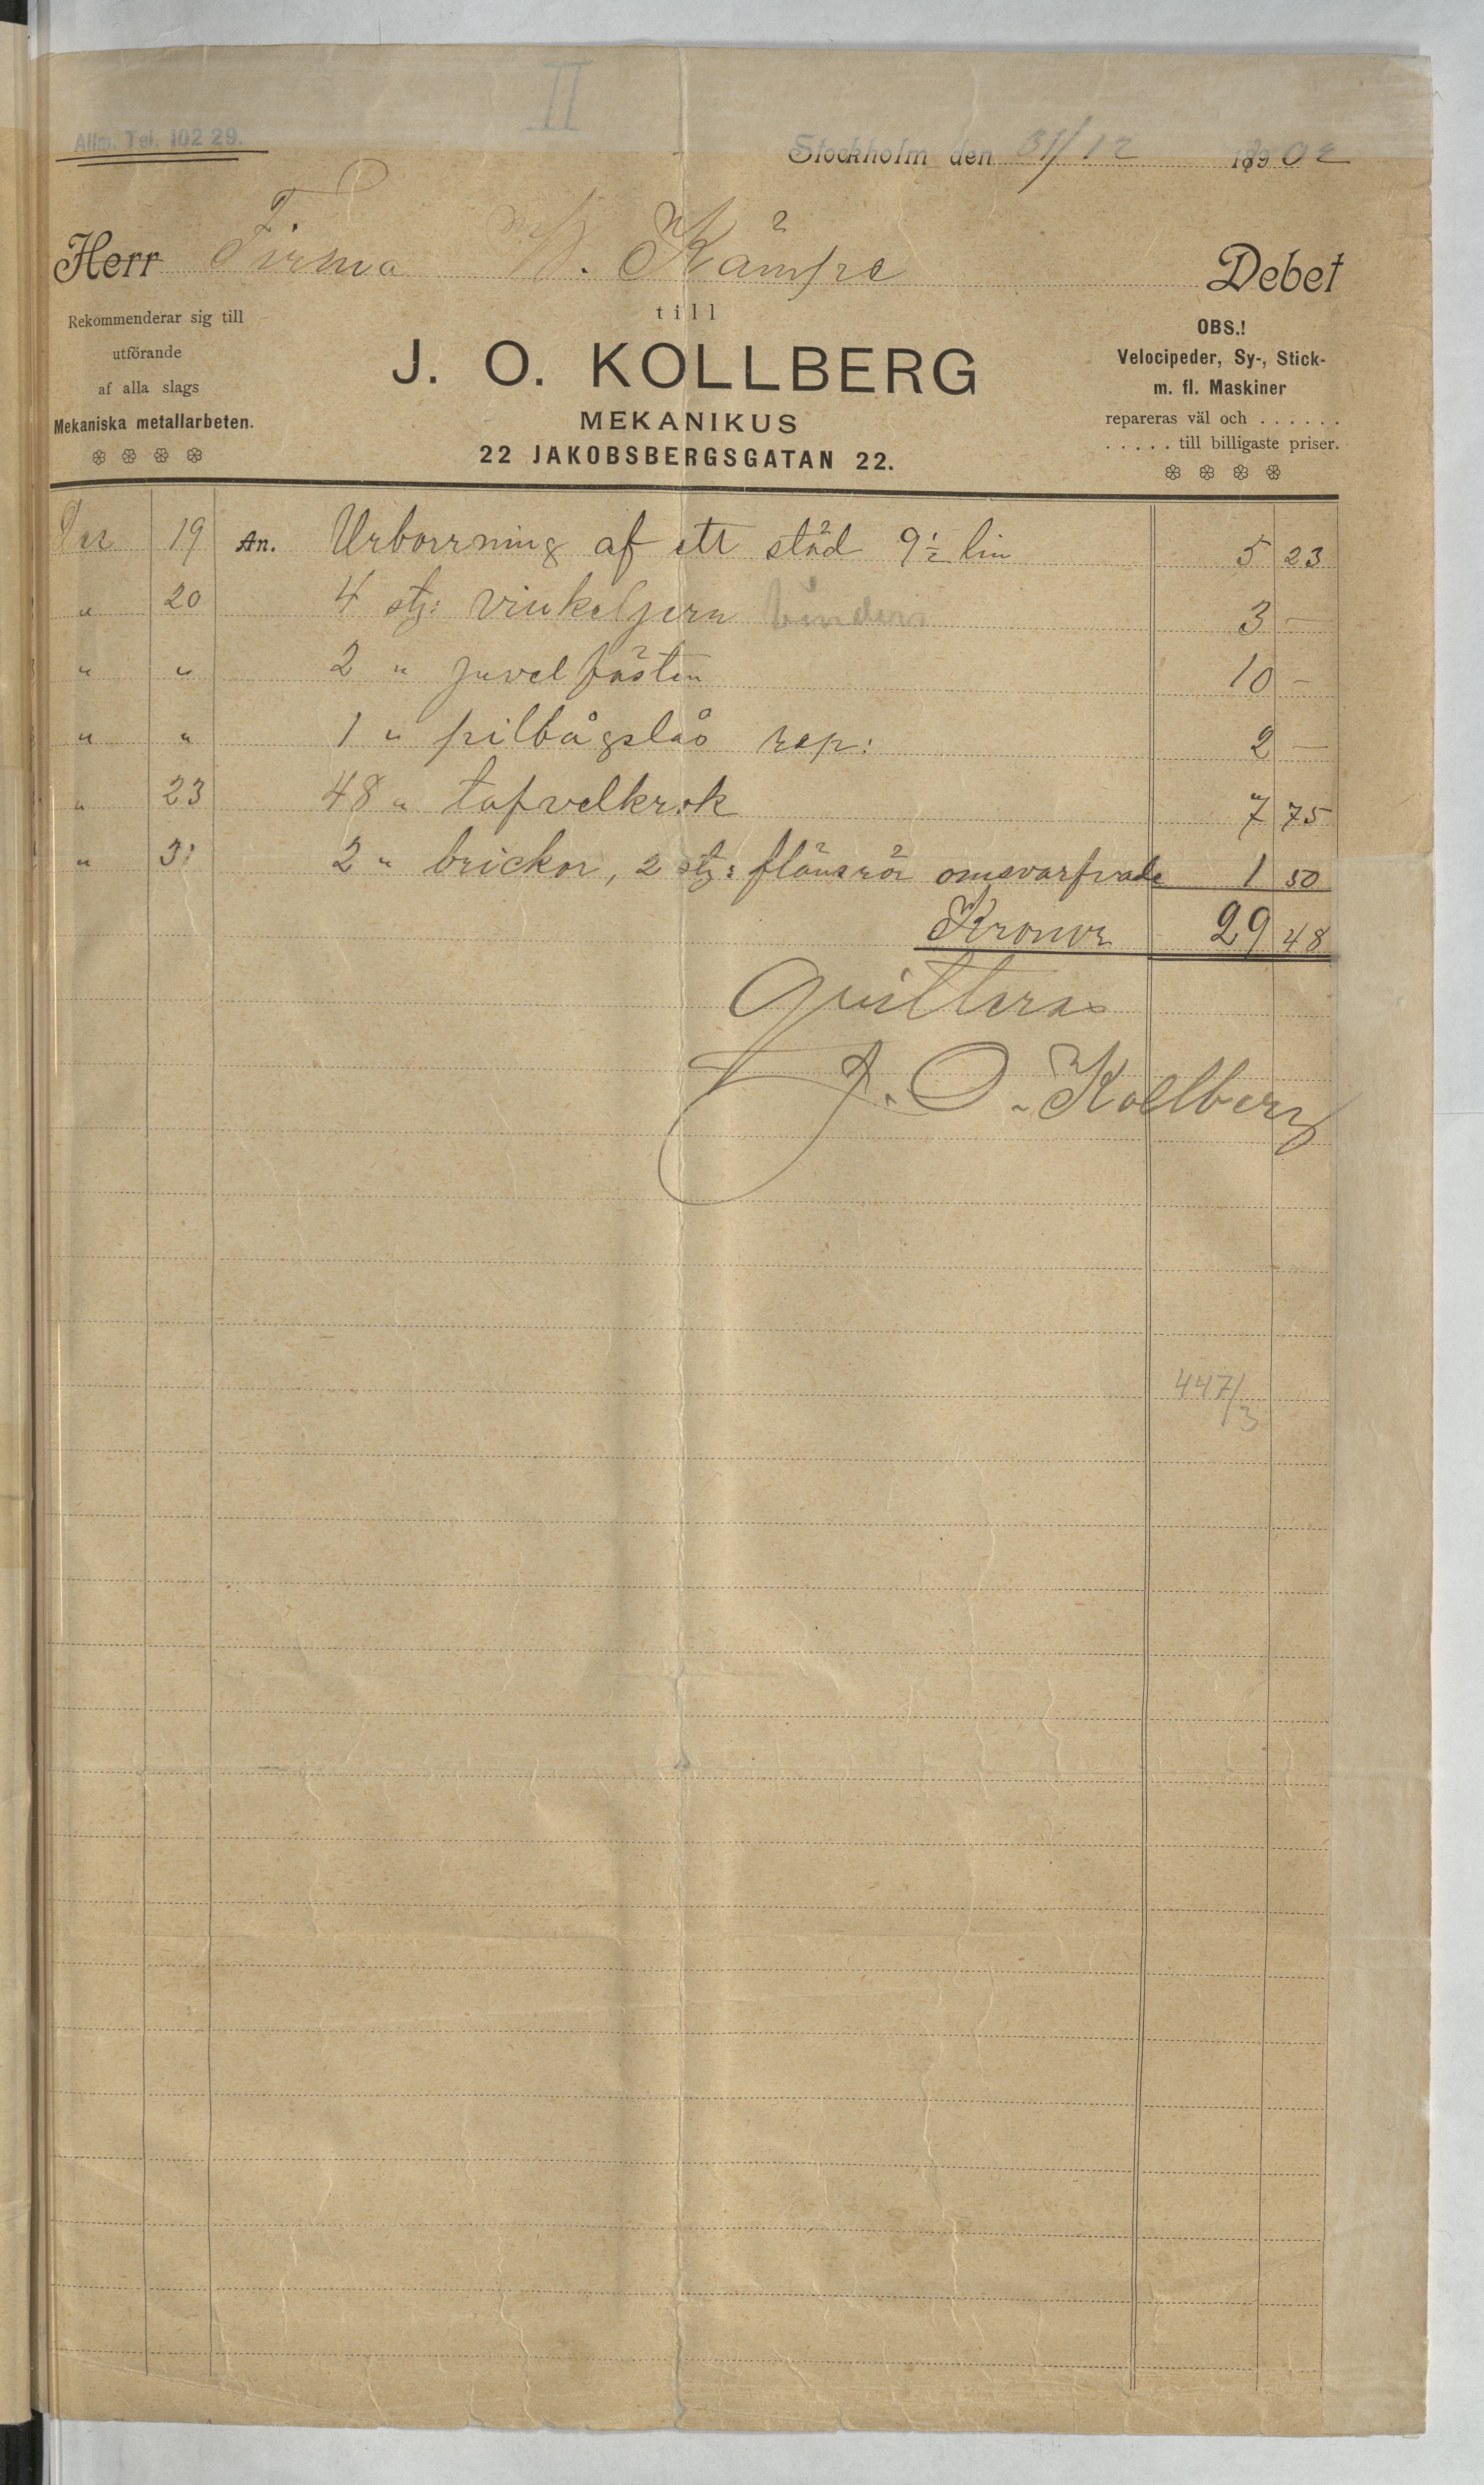 II
Allm. Tel. 102 29.
Stockholm den 31/12 1902
Herr Firma W. Kämpe Debet
till
Rekommenderar sig till
utförande
af alla slags
Mekaniska metallarbeten.
J. O. KOLLBERG
MEKANIKUS
22 JAKOBSBERGSGATAN 22.
OBS.!
Velocipeder, Sy-, Stick-
m. fl. Maskiner
repareras väl och . . . . . .
. . . . . till billigaste priser.
Dec 19 An. Urborrning af ett städ 9 1/2 tim 5 23
" 20 4 st: vinkeljern 3 —
" " 2 " juvelfästen 10 —
" " 1 " pilbågslås rep: 2 —
" 23 48 " tafvelkrok 7 75
" 31 2 " brickor, 2 st: flänsrör omsvarfvade 1 50
Kronor 29 48
Qvitteras
J. O. Kollberg
447/3